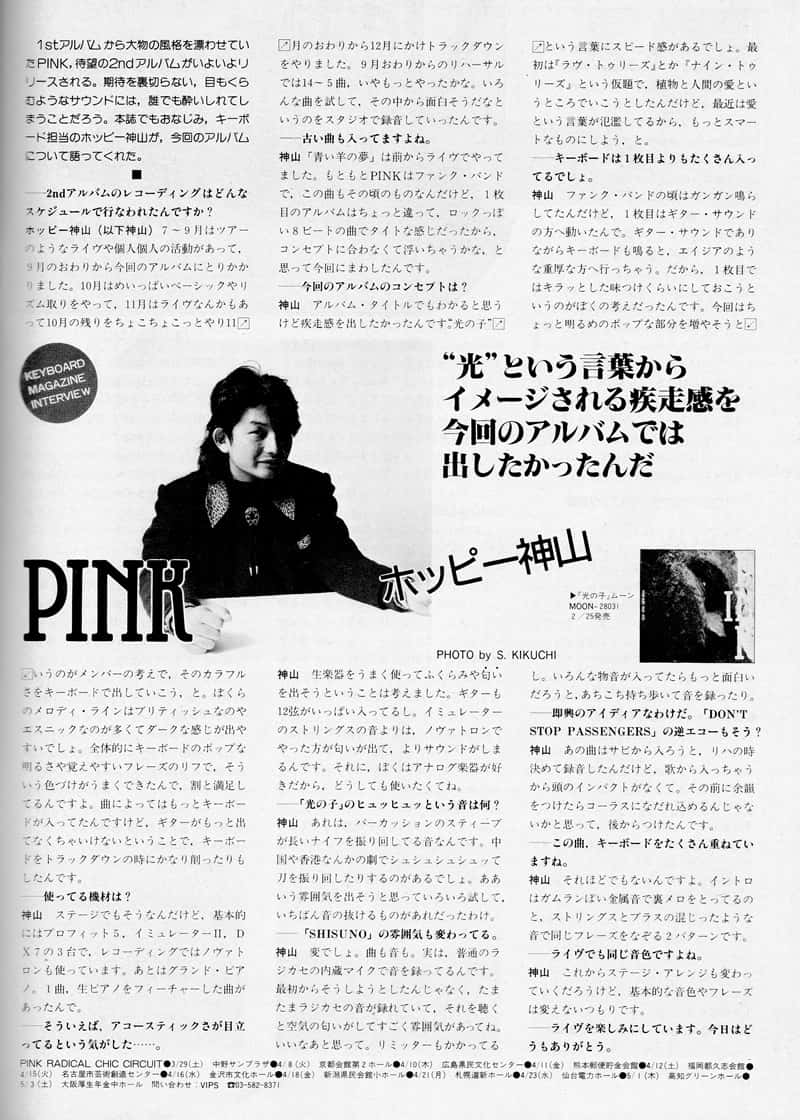 1stアルバムから大物の風格を漂わせてい
たPINK,待望の2ndアルバムがいよいよリ
リースされる。期待を裏切らない,目もくら
むようなサウンドには,誰でも酔いしれてし
まうことだろう。本誌でもおなじみ,キーボ
ード担当のホッピー神山が,今回のアルバム
について語ってくれた。
■
——2ndアルバムのレコーディングはどんな
スケジュールで行なわれたんですか?
ホッピー神山(以下神山) 7〜9月はツアー
のようなライヴや個人個人の活動があって,
9月のおわりから今回のアルバムにとりかか
りました。10月はめいっぱいベーシックやリ
ズム取りをやって,11月はライヴなんかもあ
って10月の残りをちょこちょこっとやり11
月のおわりから12月にかけトラックダウン
をやりました。9月おわりからのリハーサル
では14〜5曲,いやもっとやったかな。いろ
んな曲を試して,その中から面白そうだなと
いうのをスタジオで録音していったんです。
——古い曲も入ってますよね。
神山「青い羊の夢」は前からライヴでやって
ました。もともとPINKはファンク・バンド
で,この曲もその頃のものなんだけど,1枚
目のアルバムはちょっと違って,ロックっぽ
い8ビートの曲でタイトな感じだったから,
コンセプトに合わなくて浮いちゃうかな,と
思って今回にまわしたんです。
——今回のアルバムのコンセプトは?
神山 アルバム・タイトルでもわかると思う
けど疾走感を出したかったんです。“光の子”
という言葉にスピード感があるでしょ。最
初は『ラヴ・トゥリーズ』とか『ナイン・トゥ
リーズ』という仮題で,植物と人間の愛とい
うところでいこうとしたんだけど,最近は愛
という言葉が氾濫してるから,もっとスマー
トなものにしよう,と。
——キーボードは1枚目よりもたくさん入っ
てるでしょ。
神山 ファンク・バンドの頃はガンガン鳴ら
してたんだけど,1枚目はギター・サウンド
の方へ動いたんで。ギター・サウンドであり
ながらキーボードも鳴ると,エイジアのよう
な重厚な方へ行っちゃう。だから,1枚目で
はキラッとした味つけくらいにしておこうと
いうのがぼくの考えだったんです。今回はち
ょっと明るめのポップな部分を増やそうと
KEYBOARD
MAGAZINE
INTERVIEW
“光”という言葉から
イメージされる疾走感を
今回のアルバムでは
出したかったんだ
PINK
ホッピー神山
▶「光の子」ムーン
MOON-28031
2/25発売
PHOTO by S. KIKUCHI
いうのがメンバーの考えで,そのカラフル
さをキーボードで出していこう,と。ぼくら
のメロディ・ラインはブリティッシュなのや
エスニックなのが多くてダークな感じが出や
すいでしょ。全体的にキーボードのポップな
明るさや覚えやすいフレーズのリフで,そう
いう色づけがうまくできたんで,割と満足し
てるんですよ。曲によってはもっとキーボー
ドが入ってたんですけど,ギターがもっと出
てなくちゃいけないということで,キーボー
ドをトラックダウンの時にかなり削ったりも
したんです。
——使ってる機材は?
神山 ステージでもそうなんだけど,基本的
にはプロフィット5,イミュレーターII,D
X7の3台で,レコーディングではノヴァト
ロンも使っています。あとはグランド・ピア
ノ。1曲,生ピアノをフィーチャーした曲が
あったんで。
——そういえば,アコースティックさが目立
ってるという気がした……。
神山 生楽器をうまく使ってふくらみや匂い
を出そうということは考えました。ギターも
12弦がいっぱい入ってるし。イミュレーター
のストリングスの音よりは,ノヴァトロンで
やった方が匂いが出て,よりサウンドがしま
るんです。それに,ぼくはアナログ楽器が好
きだから,どうしても使いたくてね。
——「光の子」のヒュッヒュッという音は何?
神山 あれは,パーカッションのスティーブ
が長いナイフを振り回してる音なんです。中
国や香港なんかの劇でシュシュシュシュッて
刀を振り回したりするのがあるでしょ。ああ
いう雰囲気を出そうと思っていろいろ試して,
いちばん音の抜けるものがあれだったわけ。
——「SHISUNO」の雰囲気も変わってる。
神山 変でしょ。曲も音も。実は,普通のラ
ジカセの内蔵マイクで音を録ってるんです。
最初からそうしようとしたんじゃなく,たま
たまラジカセの音が録れていて,それを聴く
と空気の匂いがしてすごく雰囲気があってね。
いいなあと思って。リミッターもかかってる
し。いろんな物音が入ってたらもっと面白い
だろうと,あちこち持ち歩いて音を録ったり。
——即興のアイディアなわけだ。「DON'T
STOP PASSENGERS」の逆エコーもそう?
神山 あの曲はサビから入ろうと,リハの時
決めて録音したんだけど,歌から入っちゃう
から頭のインパクトがなくて。その前に余韻
をつけたらコーラスになだれ込めるんじゃな
いかと思って,後からつけたんです。
——この曲,キーボードをたくさん重ねてい
ますね。
神山 それほどでもないんですよ。イントロ
はガムランぽい金属音で裏メロをとってるの
と,ストリングスとブラスの混じったような
音で同じフレーズをなぞる2パターンです。
——ライヴでも同じ音色ですよね。
神山 これからステージ・アレンジも変わっ
ていくだろうけど,基本的な音色やフレーズ
は変えないつもりです。
——ライヴを楽しみにしています。今日はど
うもありがとう。
PINK RADICAL CHIC CIRCUIT●3/29(土) 中野サンプラザ●4/8(火) 京都会館第2ホール●4/10(木) 広島県民文化センター●4/11(金) 熊本郵便貯金会館●4/12(土) 福岡都久志会館●
4/15(火) 名古屋市芸術創造センター●4/16(水) 金沢市文化ホール●4/18(金) 新潟県民会館小ホール●4/21(月) 札幌道新ホール●4/23(水) 仙台電力ホール●5/1(木) 高知グリーンホール●
5/3(土) 大阪厚生年金中ホール 問い合わせ:VIPS ☎03-582-8371